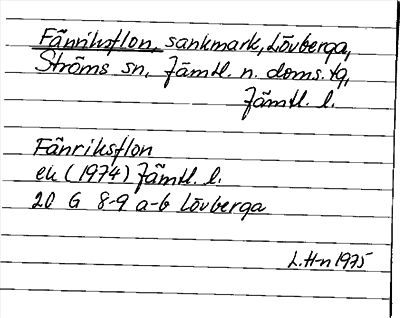 Fänriksflon, sankmark, Lövberga,
Ströms sn, Jämtl. n. doms. tg,
Jämtl. l.
Fänriksflon
ek (1974) Jämtl. l.
20 G 8-9 a-b Lövberga
L.H-n 1975